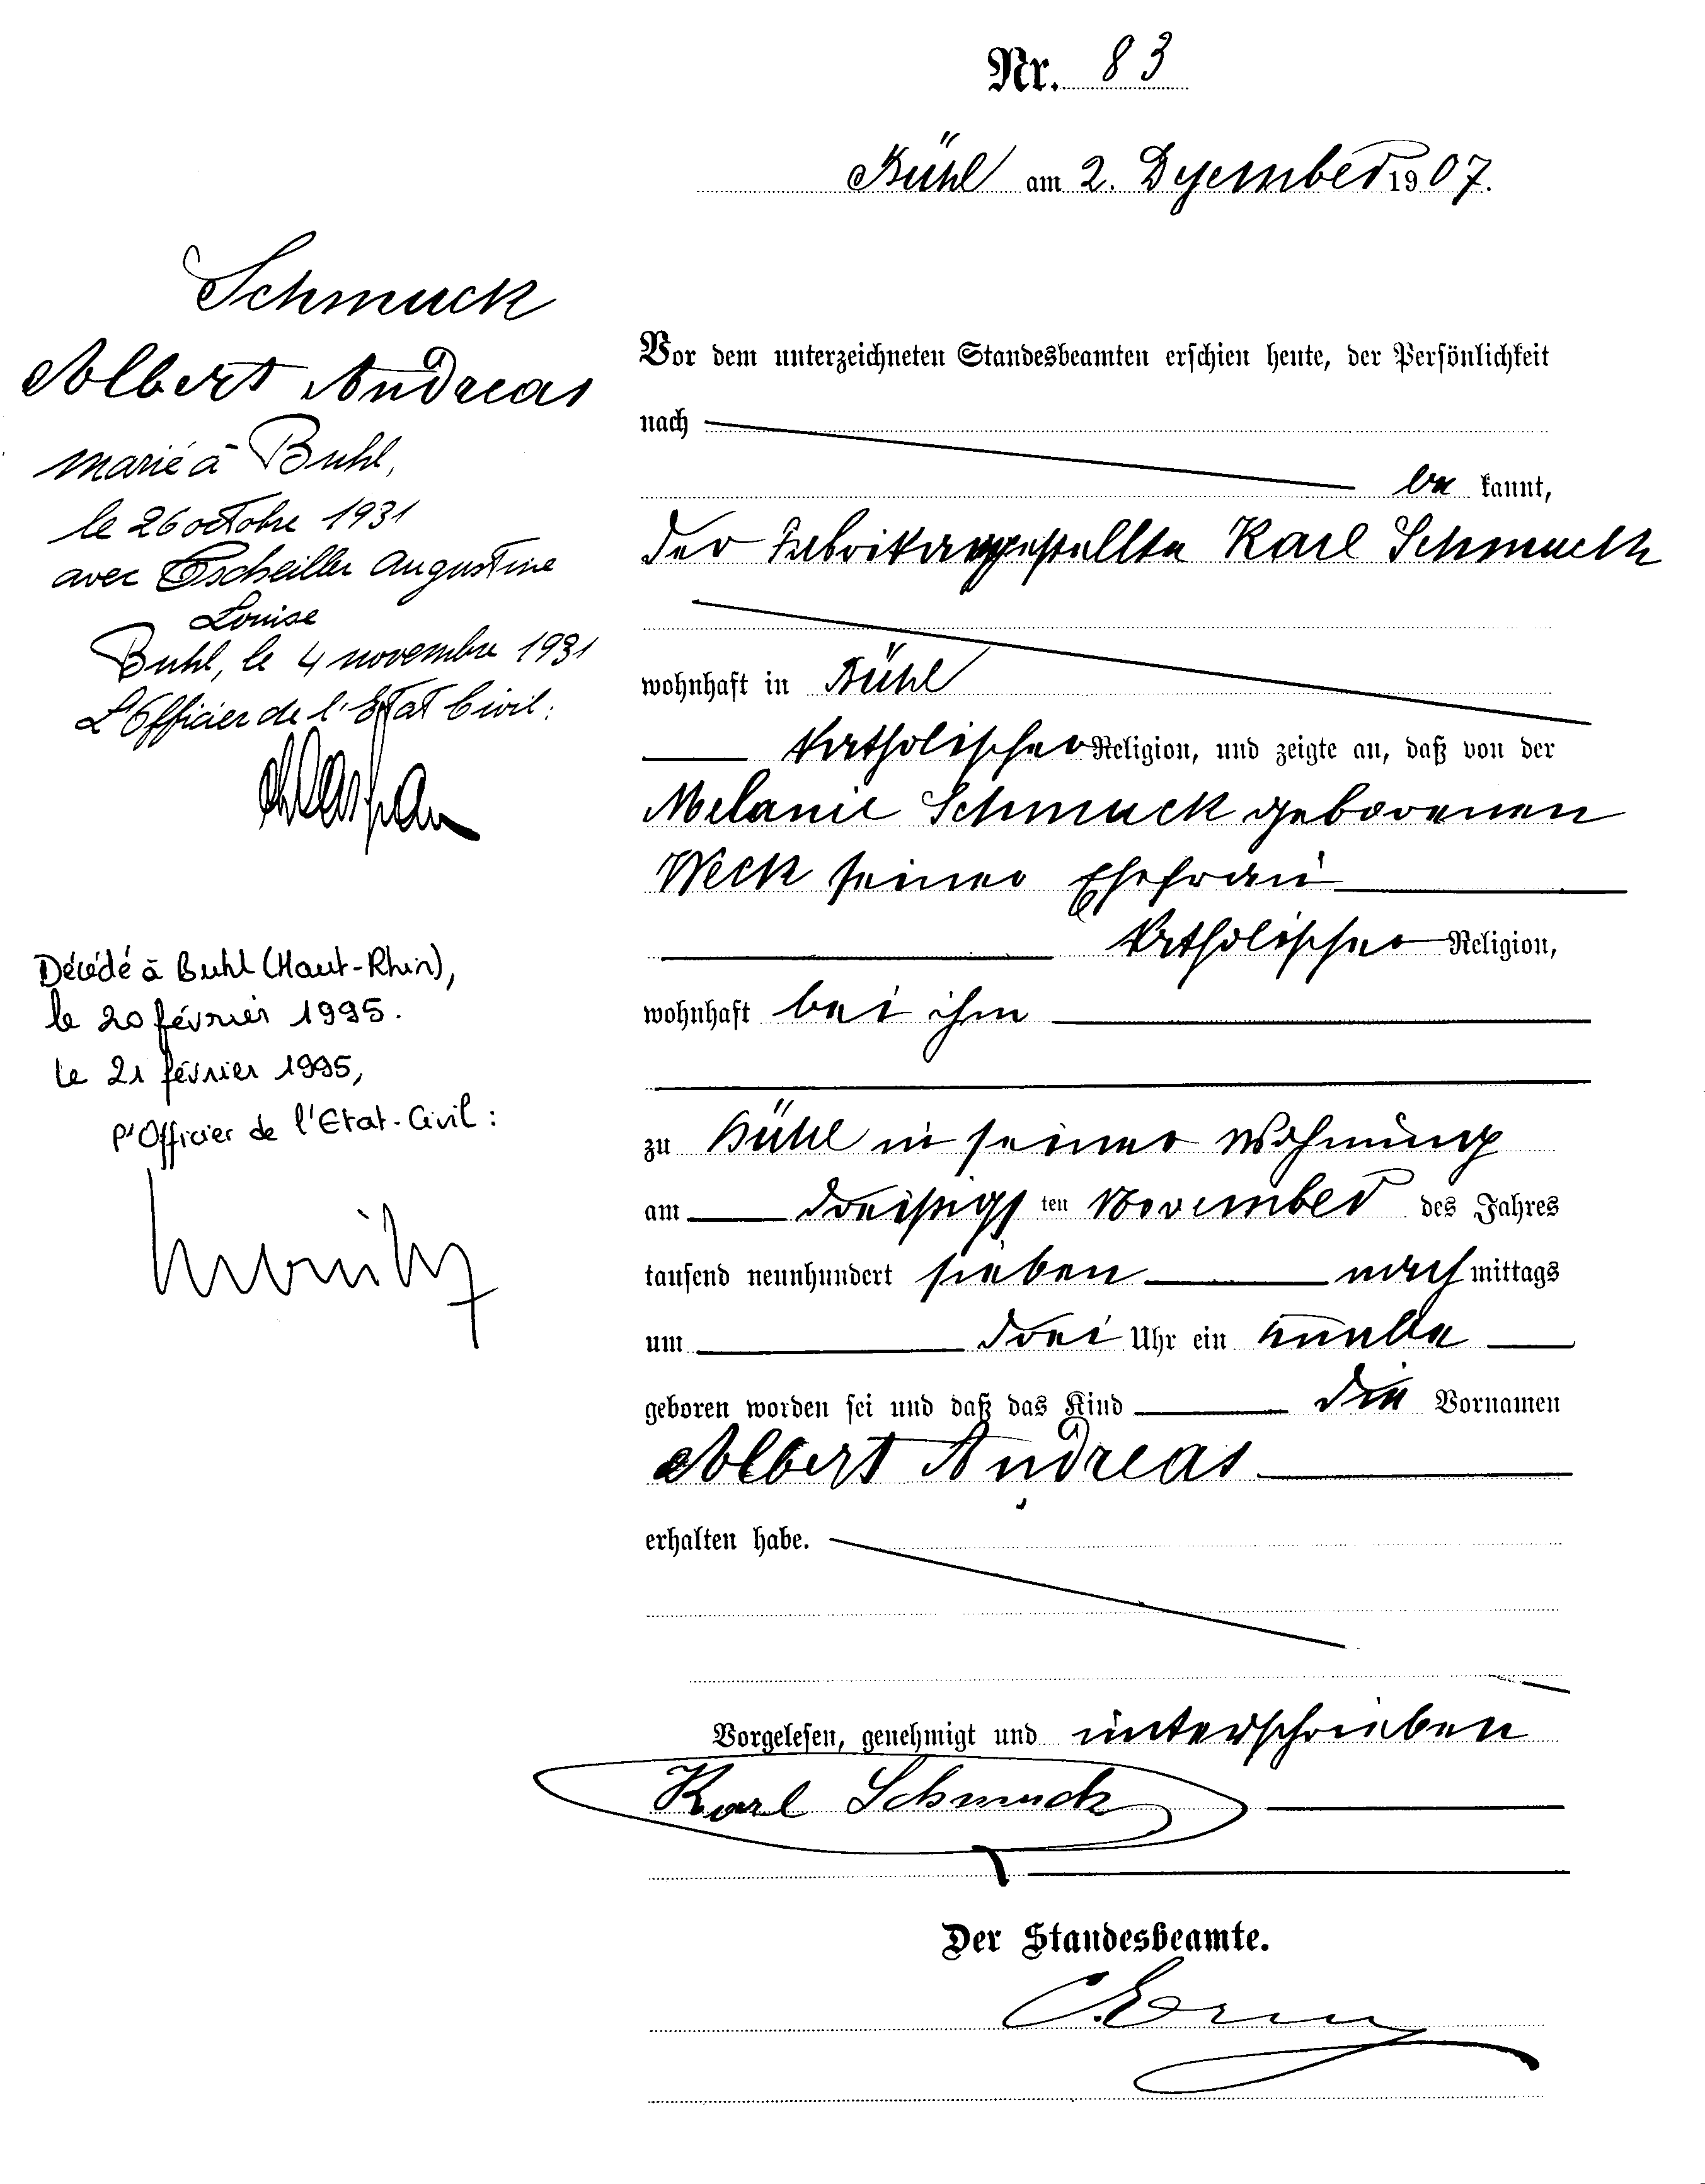 Nr. 83
Bühl am 2. Dezember 1907.
Schmuck
Albert Andreas
marié à Buhl,
le 26 octobre 1931
avec Tscheiller Augustine
Louise
Buhl, le 4 novembre 1931
L'Officier de l'Etat Civil:
Décédé à Buhl (Haut-Rhin),
le 20 février 1995.
le 21 février 1995,
l'Officier de l'Etat-Civil:
Vor dem unterzeichneten Standesbeamten erschien heute, der Persönlichkeit
nach
be kannt,
der Fabrikangestellte Karl Schmuck
wohnhaft in Bühl
katholischer Religion, und zeigte an, daß von der
Melanie Schmuck geborenen
Weck seiner Ehefrau
katholischer Religion,
wohnhaft bei ihm
zu Bühl in seiner Wohnung
am dreißigsten November des Jahres
tausend neunhundert sieben nachmittags
um drei Uhr ein Knabe
geboren worden sei und daß das Kind die Vornamen
Albert Andreas
erhalten habe.
Vorgelesen, genehmigt und unterschrieben
Karl Schmuck
Der Standesbeamte.